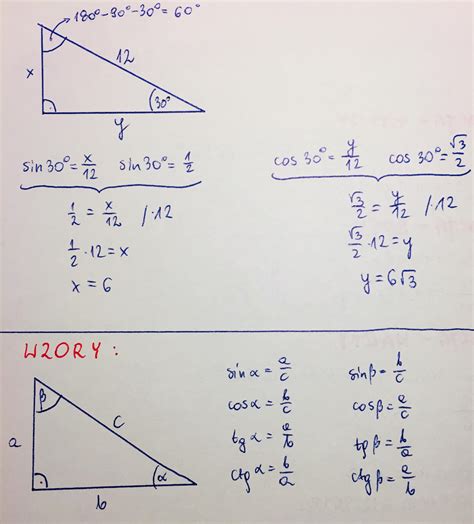 180°-90°-30°=60°
x
12
30°
y
sin30°=x/12 sin30°=1/2
1/2 = x/12 /·12
1/2 ·12 = x
x = 6
cos30°=y/12 cos30°=√3/2
√3/2 = y/12 /·12
√3/2 ·12 = y
y = 6√3
WZORY:
β
a
c
α
b
sinα = a/c
cosα = b/c
tgα = a/b
ctgα = b/a
sinβ = b/c
cosβ = a/c
tgβ = b/a
ctgβ = a/b